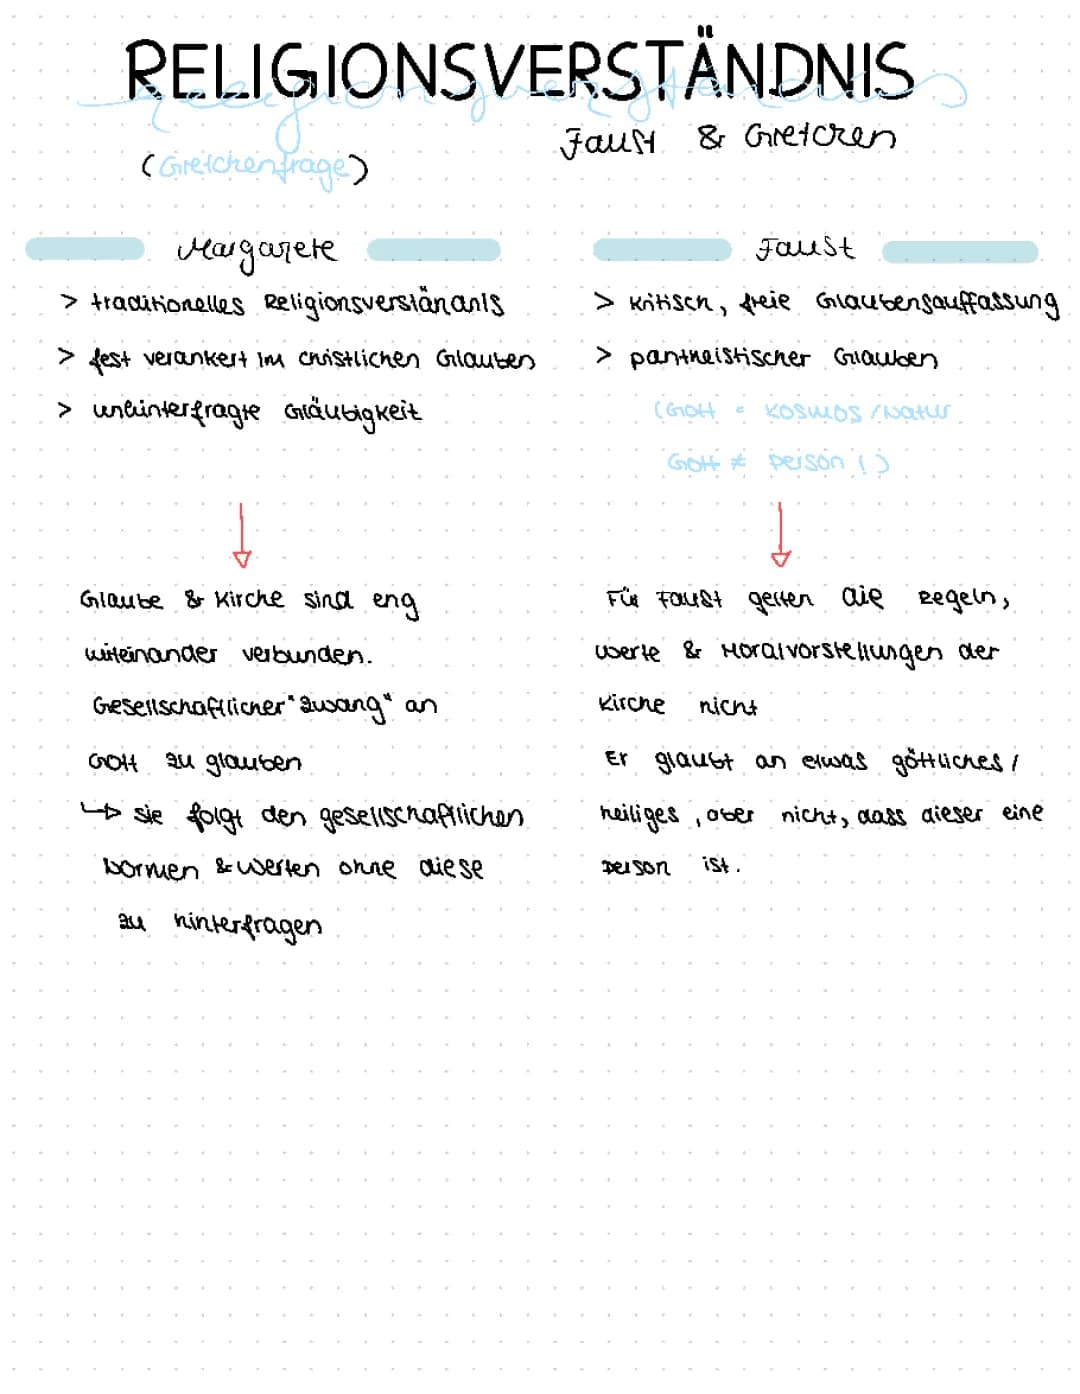 RELIGIONSVERSTÄNDNIS
Religionsverständnis
Faust & Gretchen
(Gretchenfrage)
Margarete
> traditionelles Religionsverständnis
> fest verankert im christlichen Glauben
> unhinterfragte Gläubigkeit
Glaube & Kirche sind eng
miteinander verbunden.
Gesellschaftlicher "Zwang" an
Gott zu glauben
↳ sie folgt den gesellschaftlichen
Normen & Werten ohne diese
zu hinterfragen
Faust
> kritisch, freie Glaubensauffassung
> pantheistischer Glauben
(Gott = Kosmos / Natur
Gott ≠ Person!)
Für Faust gelten die Regeln,
Werte & Moralvorstellungen der
Kirche nicht
Er glaubt an etwas göttliches /
heiliges, aber nicht, dass dieser eine
Person ist.